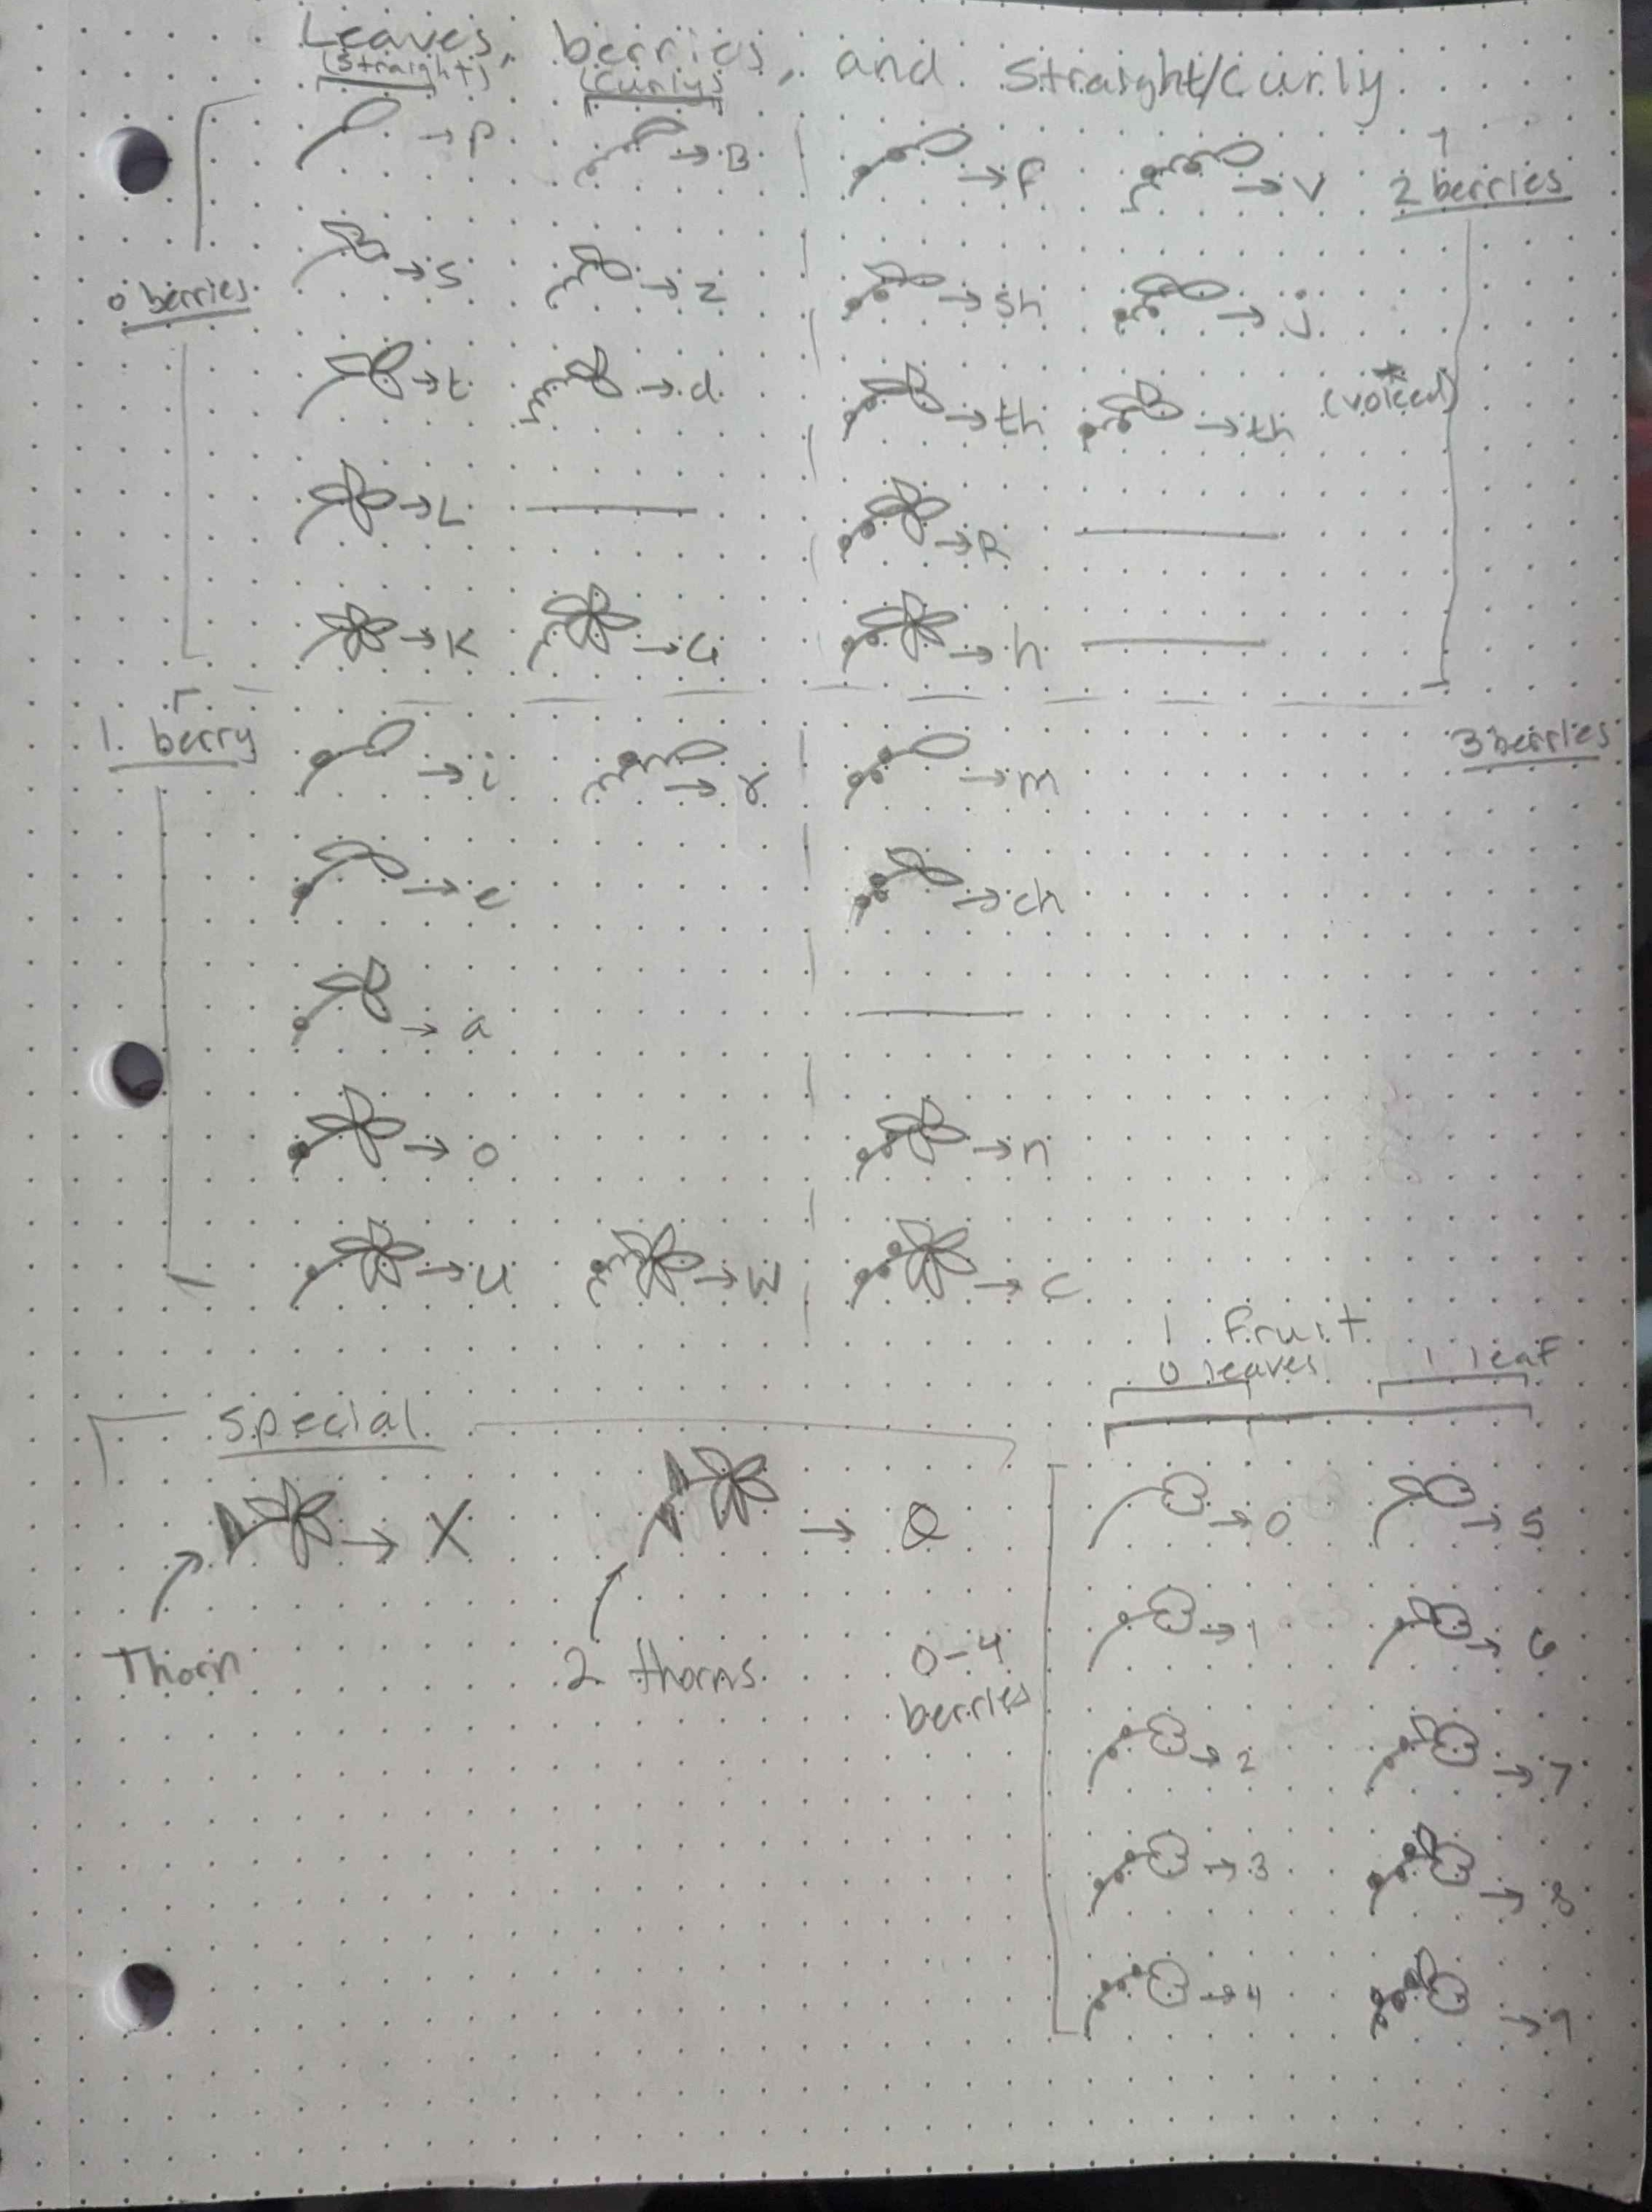 Leaves, berries, and Straight/Curly
(Straight) (Curly)
→ P → B → f → V 2 berries
0 berries → S → Z → Sh → j
→ t → d → th → th (voiced) *
→ L → R
→ K → G → h
1 berry → i → Y → m 3 berries
→ e → ch
→ a
→ o → n
→ u → W → C
1 fruit
0 leaves 1 leaf
Special
→ X → Q → 0 → 5
→ 1 → 6
Thorn 2 thorns 0-4 berries
→ 2 → 7
→ 3 → 8
→ 4 → 9